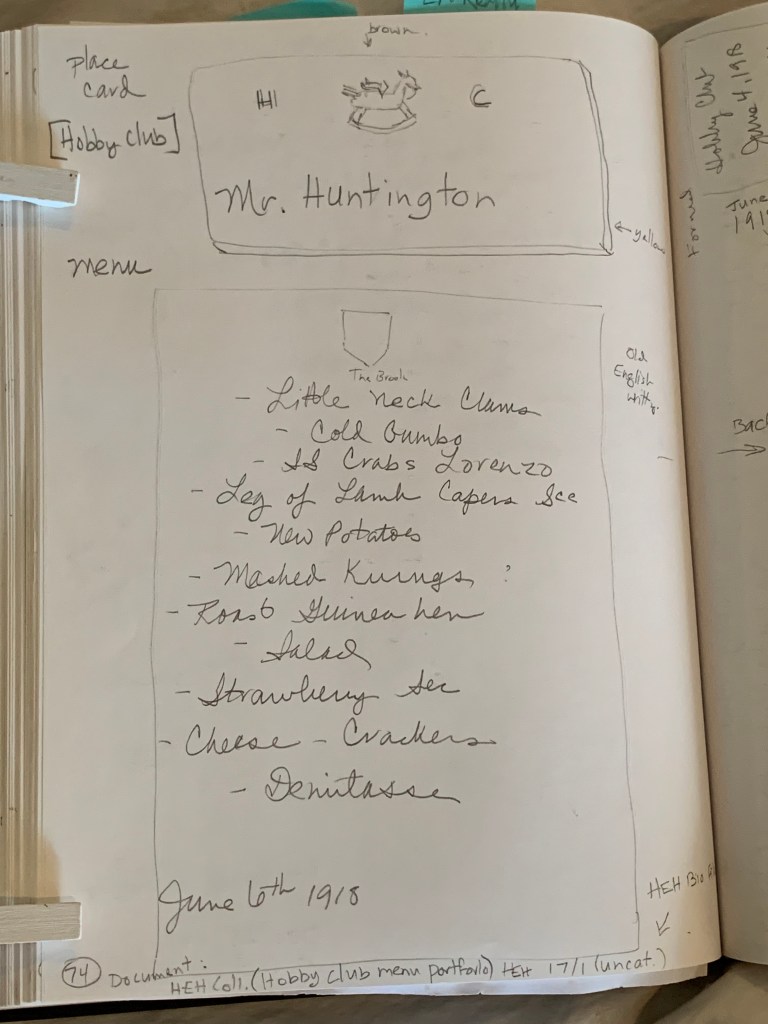 brown.
Place
card
[Hobby Club]
H C
Mr. Huntington
← yellow
menu
The Brook
Old
English
- Little Neck Clams
- Cold Gumbo
- SS Crabs Lorenzo
- Leg of Lamb Capers Sce
- New Potatoes
- Mashed ?
- Roast Guinea hen
- Salad
- Strawberry
- Cheese - Crackers
- Demitasse
June 6th 1918
HEH Bio
74 Document:
HEH Coll. (Hobby Club menu portfolio) HEH 17/1 (uncat.)
Hobby Club
June 4, 191
Formal
June
191
Bac